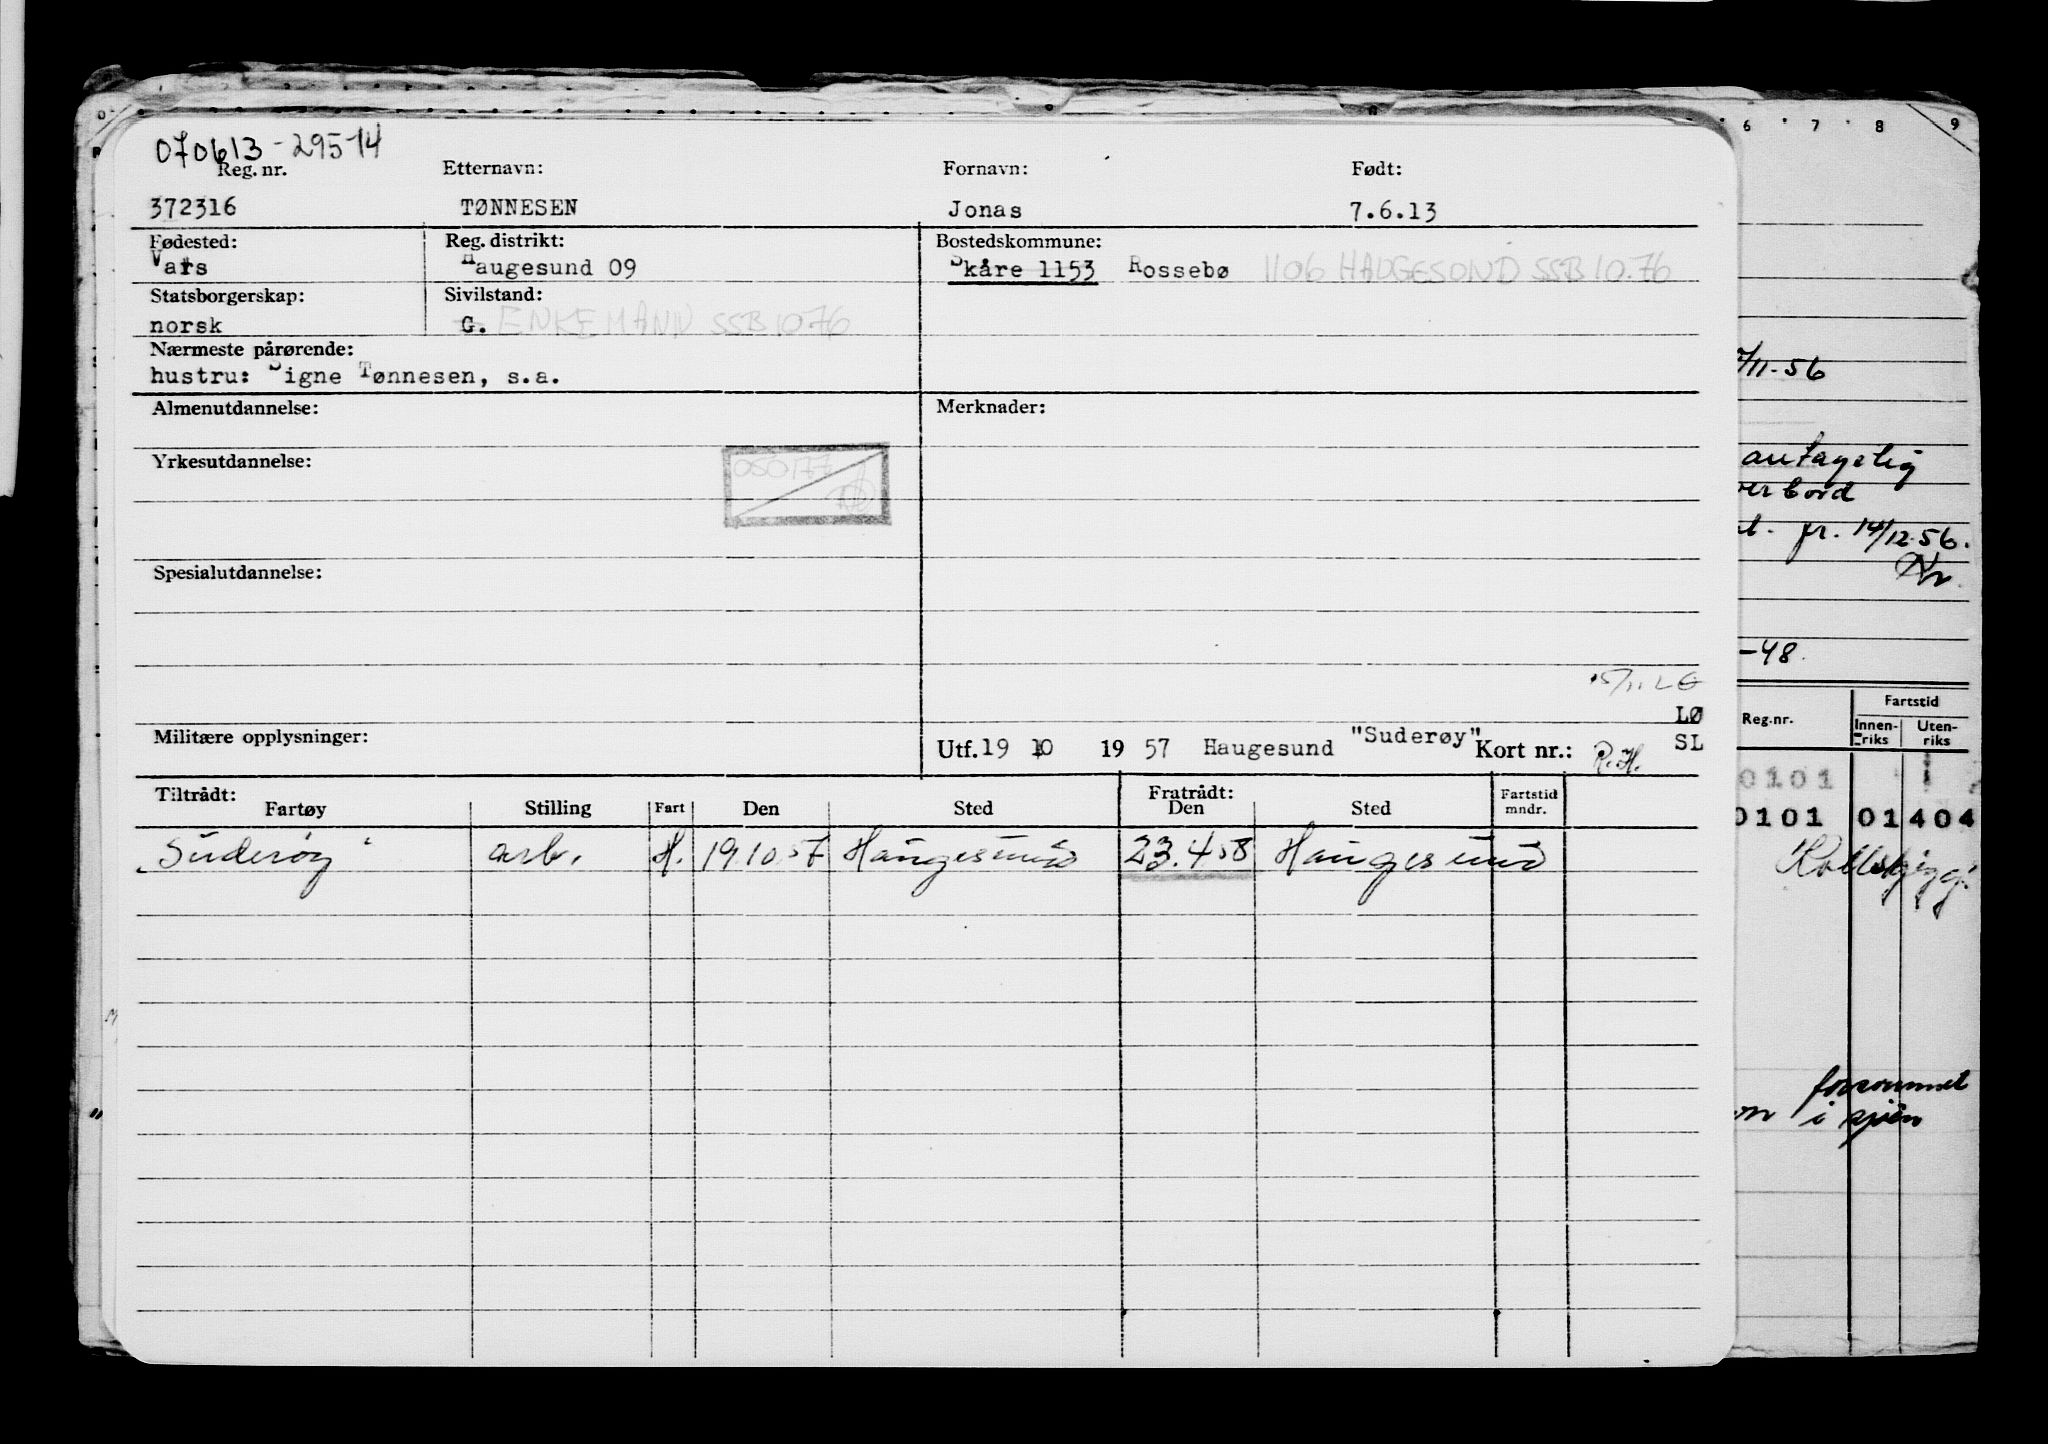 070613-29514
Reg. nr. Etternavn: Fornavn: Født:
372316 TØNNESEN Jonas 7.6.13
Fødested: Reg. distrikt: Bostedskommune:
Vats Haugesund 09 Skåre 1153 Rossebø 1106 HAUGESUND SSB 10.76
Statsborgerskap: Sivilstand:
norsk G. ENKEMANN SSB 10 76
Nærmeste pårørende:
hustru: Signe Tønnesen, s.a.
Almenutdannelse: Merknader:
Yrkesutdannelse:
050177
Spesialutdannelse:
LØ
Militære opplysninger: Utf. 19 10 1957 Haugesund "Suderøy" Kort nr.: R.H. SL
Tiltrådt: Fratrådt:
Fartøy Stilling Fart Den Sted Den Sted Fartstid mndr.
"Suderøy" arb. H. 19.10.57 Haugesund 23.4.58 Haugesund
6 7 8 9
/11-56
antagelig
bord
fr. 14/12.56.
-48.
Reg.nr. Fartstid
Innen-riks Uten-riks
0101
0101 01 404
forsømmet
i sjøen